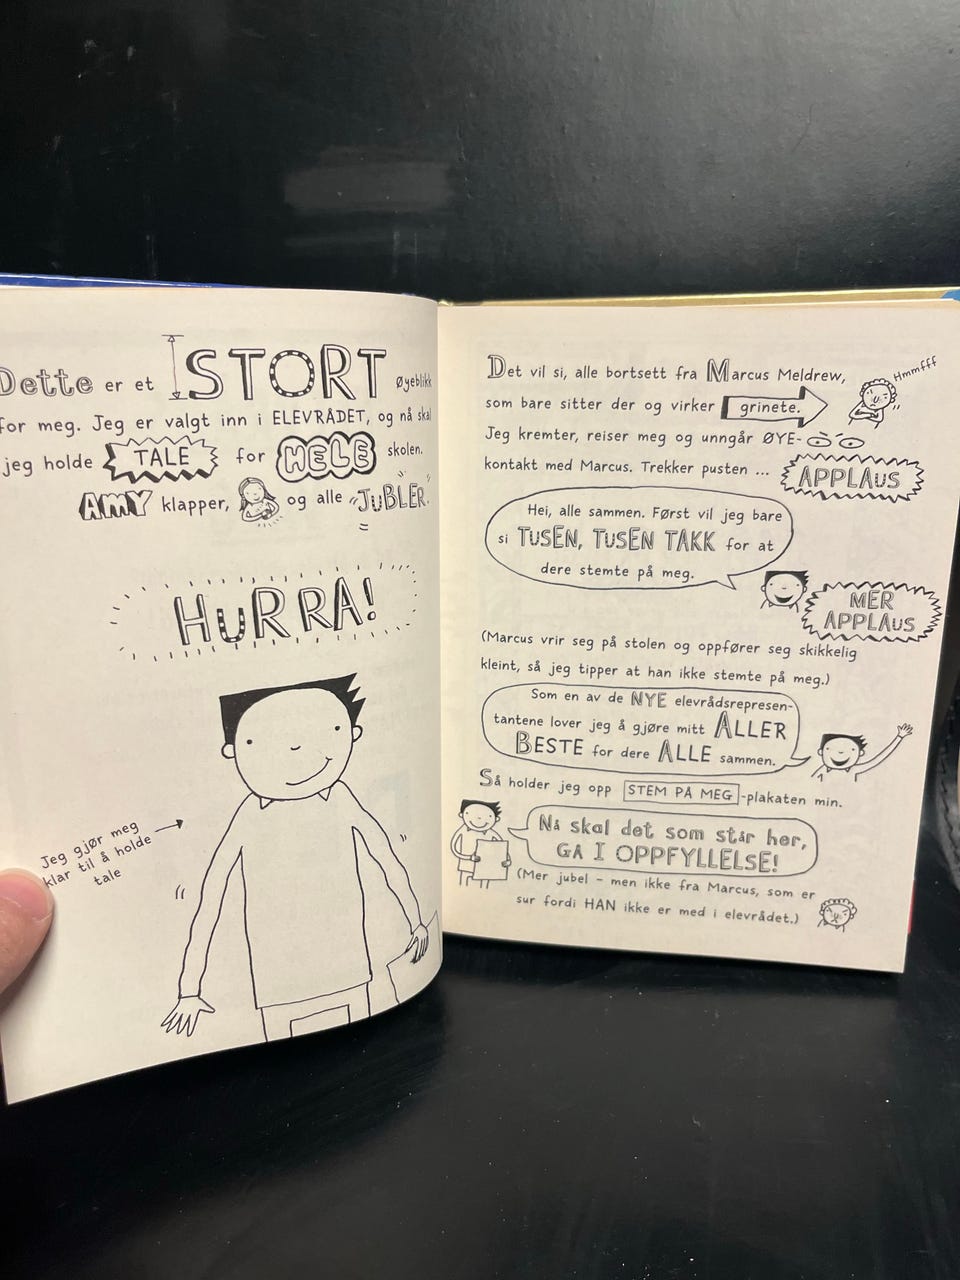 Dette er et STORT øyeblikk
for meg. Jeg er valgt inn i ELEVRÅDET, og nå skal
jeg holde TALE for HELE skolen.
AMY klapper, og alle JUBLER.
HURRA!
Jeg gjør meg
klar til å holde
tale
Det vil si, alle bortsett fra Marcus Meldrew,
Hmmfff
som bare sitter der og virker grinete.
Jeg kremter, reiser meg og unngår ØYE-
kontakt med Marcus. Trekker pusten ... APPLAUS
Hei, alle sammen. Først vil jeg bare
si TUSEN, TUSEN TAKK for at
dere stemte på meg.
MER
APPLAUS
(Marcus vrir seg på stolen og oppfører seg skikkelig
kleint, så jeg tipper at han ikke stemte på meg.)
Som en av de NYE elevrådsrepresen-
tantene lover jeg å gjøre mitt ALLER
BESTE for dere ALLE sammen.
Så holder jeg opp STEM PÅ MEG-plakaten min.
Nå skal det som står her,
GÅ I OPPFYLLELSE!
(Mer jubel – men ikke fra Marcus, som er
sur fordi HAN ikke er med i elevrådet.)